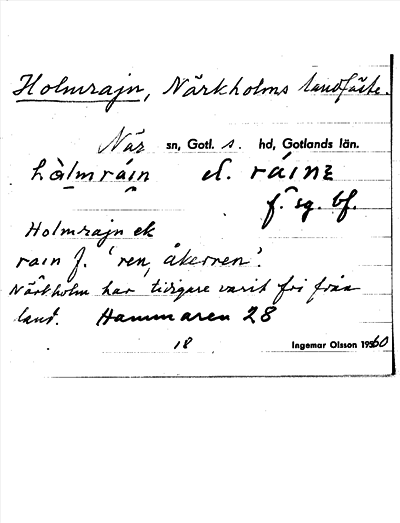 Holmrajn, Närkholms landfäste.
När sn, Gotl. s. hd, Gotlands län.
hàlmráin el. ráinɛ
f. sg. bf.
Holmrajn ek
rain f. 'ren, åkerren'.
Närkholm har tidigare varit fri från
land. Hammaren 28
18 Ingemar Olsson 1960